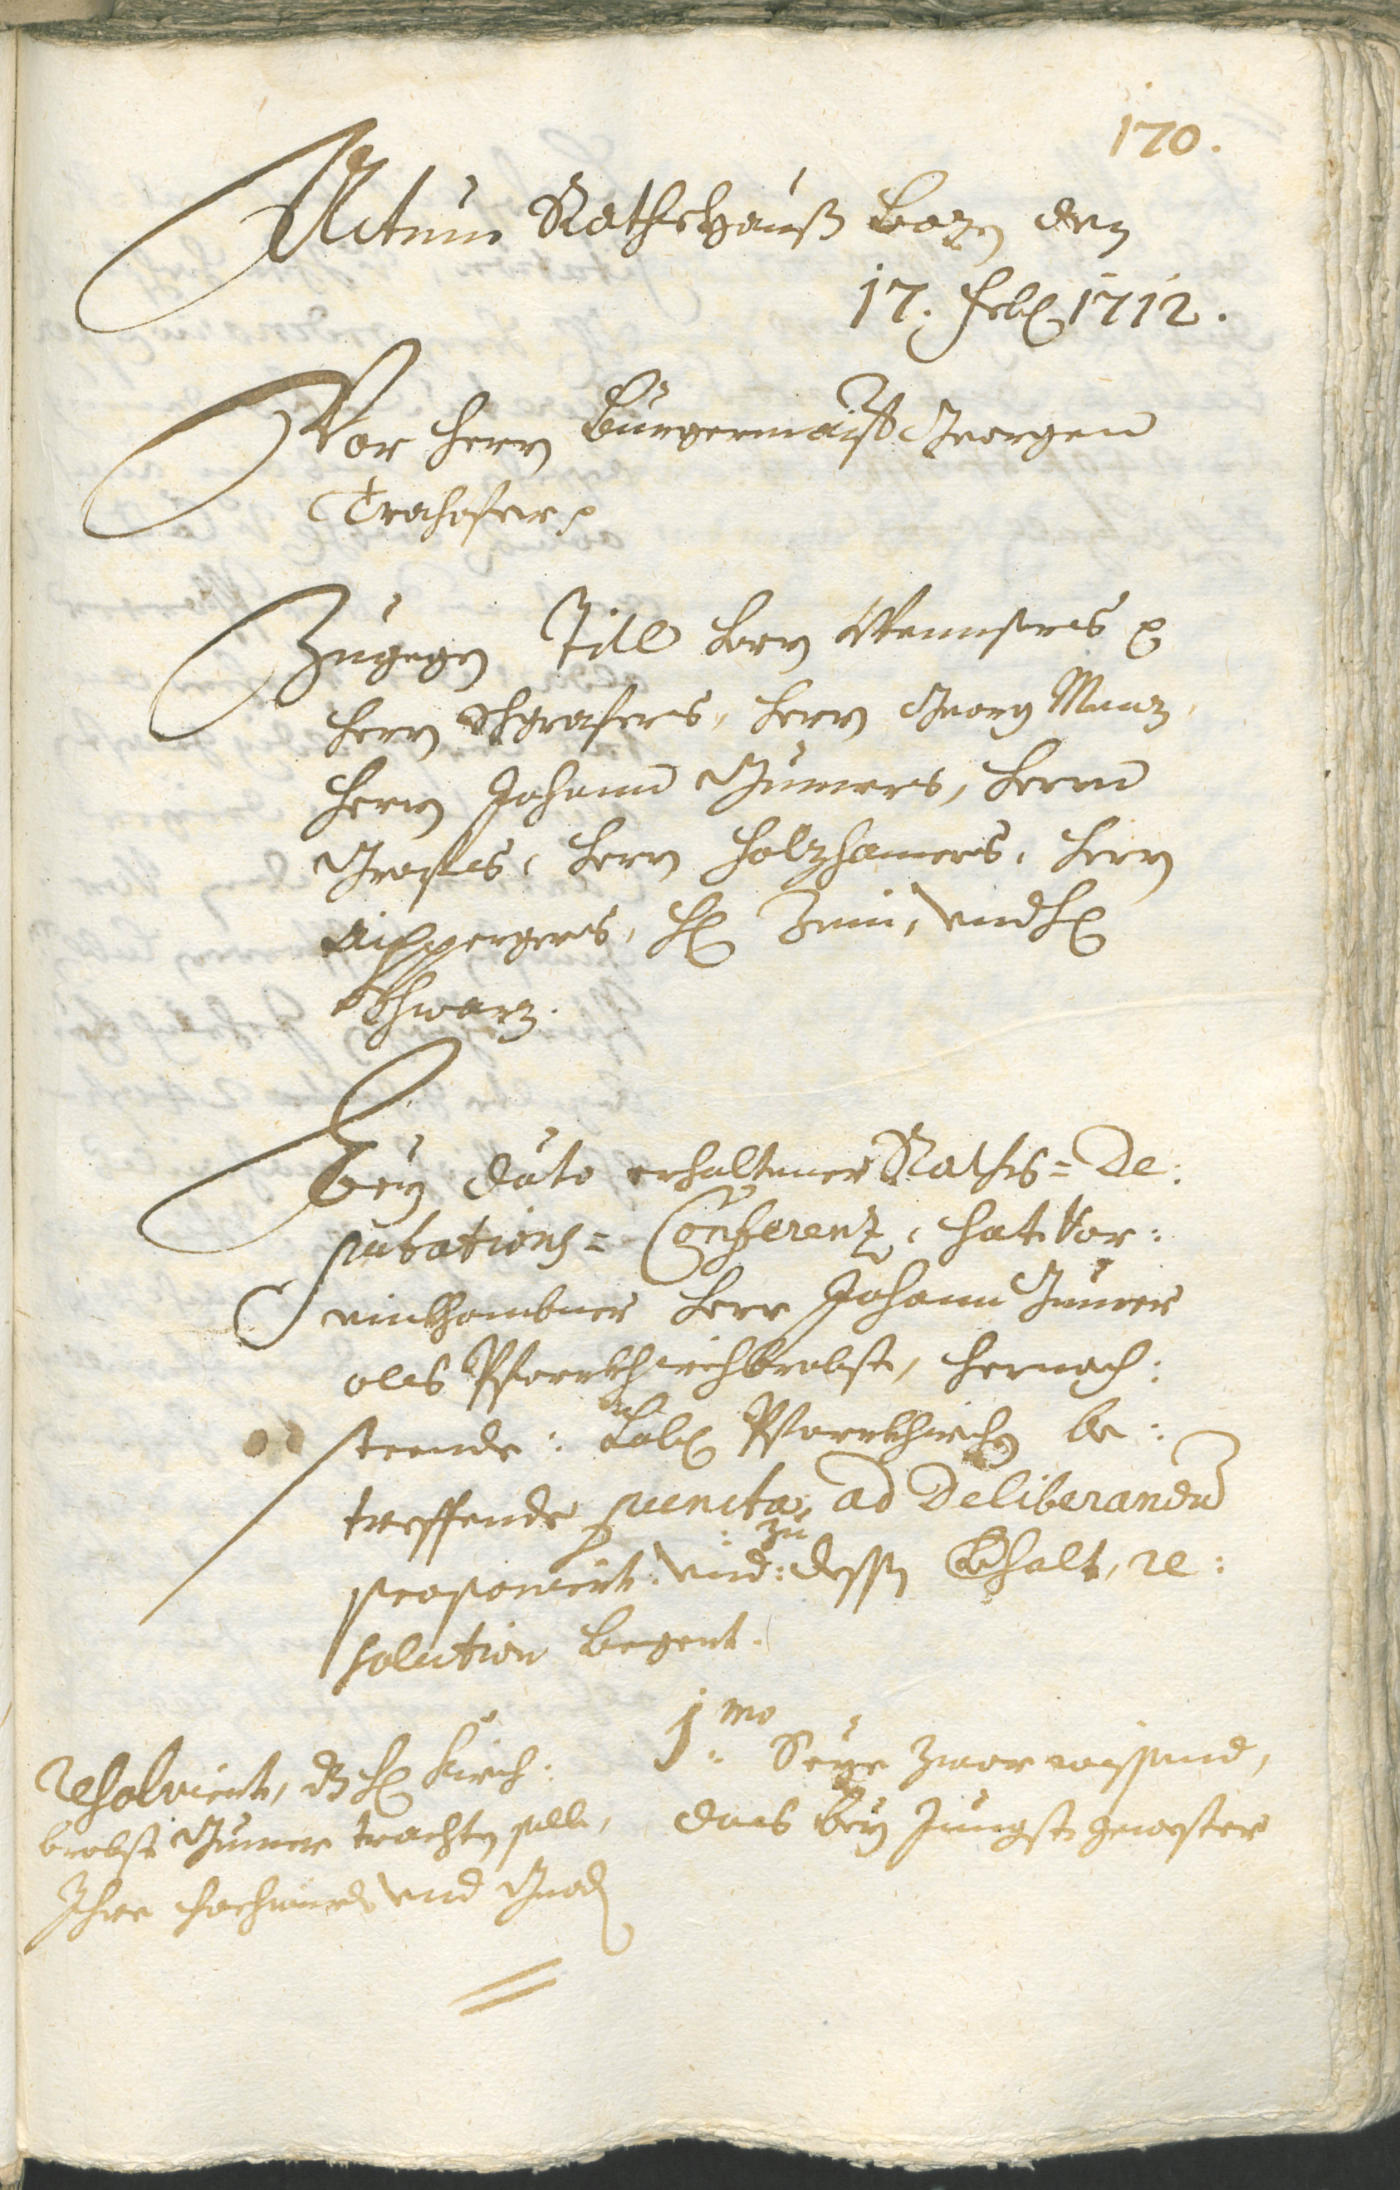 170.
Actum Rathshauß Bozen den
17. Feb: 1712.
Vor Herrn Burgermaister Georgen
Trahofer p
Zugegen Titl Herrn p
Herrn Herrn Georg Menz,
Herrn Johann Gumers, Herrn
Grafls, Herrn Holzhamers, Herrn
Aichpergers, H: und H:
Schwarz.
Bey dato erhaltener Raths= De:
putations= Conferenz, hat Vor:
einkhombner Herr Johann Gumer
als Pfarrkhirchbrobst, hernach:
steende: Lob: Pfarrkhirchen be:
treffende puncta, ad Deliberandum
proponiert: und: zu dessen Erhalt, re:
solution begert.
1.mo Seye zwar wissend,
das bey Jungst gewester
Resolviert, dz H: Kirch:
brobst Gumer trachten solle,
Ihre Hochwürd: und Gnad: